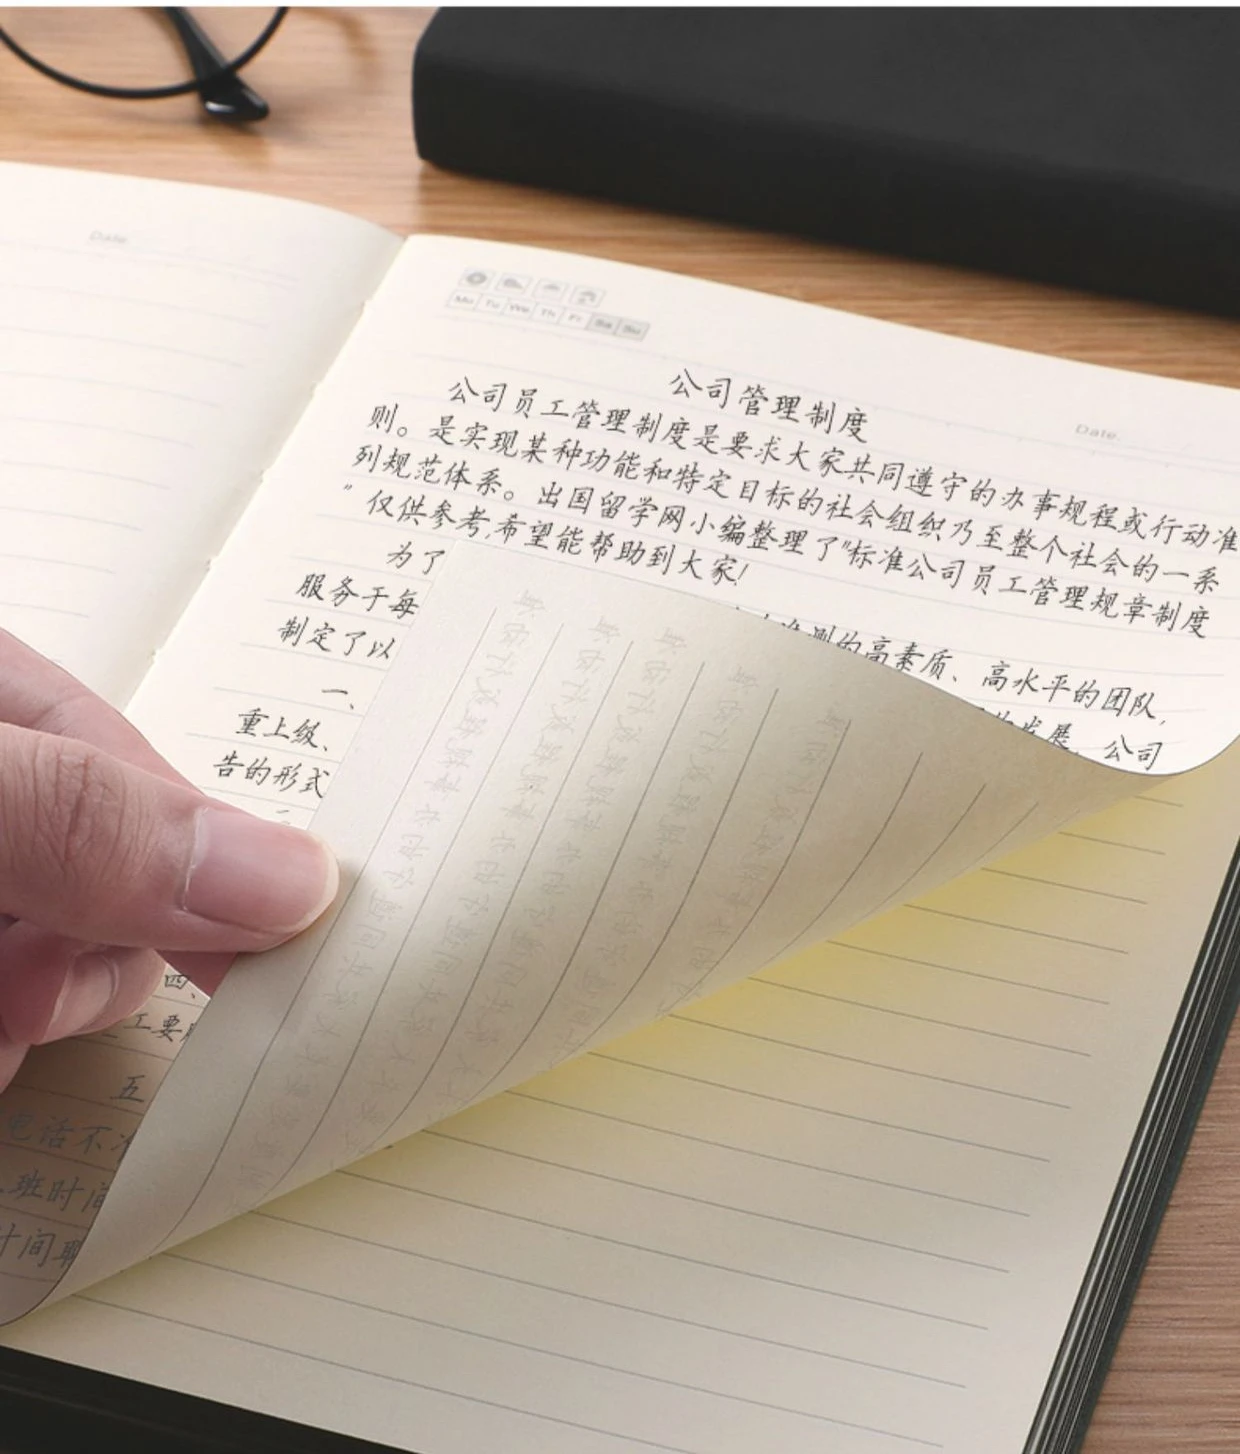 Date.
Mo Tu We Th Fr Sa Su
Date.
公司管理制度
公司员工管理制度是要求大家共同遵守的办事规程或行动准
则。是实现某种功能和特定目标的社会组织乃至整个社会的一系
列规范体系。出国留学网小编整理了"标准公司员工管理规章制度
"仅供参考,希望能帮助到大家!
为了
的高素质、高水平的团队,
服务于每
发展,公司
制定了以
一、
重上级、
告的形式
二
四、
工要
五
电话不
班时间
时间